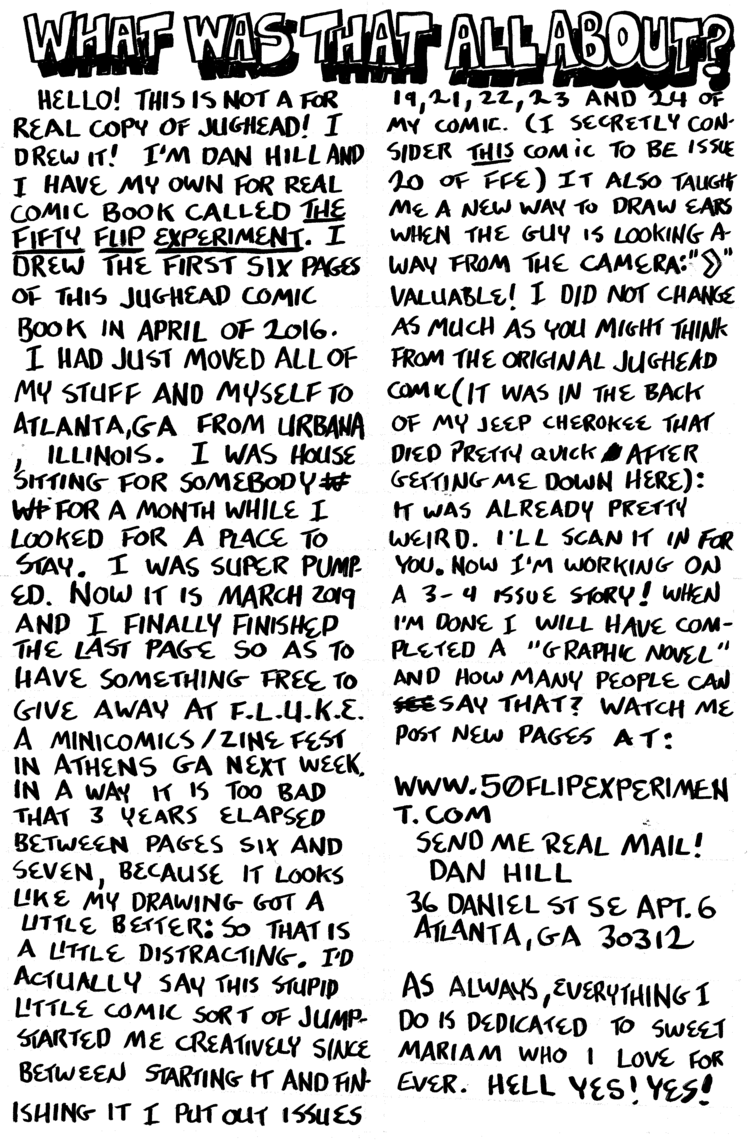 WHAT WAS THAT ALL ABOUT?
HELLO! THIS IS NOT A FOR
REAL COPY OF JUGHEAD! I
DREW IT! I'M DAN HILL AND
I HAVE MY OWN FOR REAL
COMIC BOOK CALLED THE
FIFTY FLIP EXPERIMENT. I
DREW THE FIRST SIX PAGES
OF THIS JUGHEAD COMIC
BOOK IN APRIL OF 2016.
I HAD JUST MOVED ALL OF
MY STUFF AND MYSELF TO
ATLANTA, GA FROM URBANA
, ILLINOIS. I WAS HOUSE
SITTING FOR SOMEBODY
FOR A MONTH WHILE I
LOOKED FOR A PLACE TO
STAY. I WAS SUPER PUMP-
ED. NOW IT IS MARCH 2019
AND I FINALLY FINISHED
THE LAST PAGE SO AS TO
HAVE SOMETHING FREE TO
GIVE AWAY AT F.L.U.K.E.
A MINICOMICS/ZINE FEST
IN ATHENS GA NEXT WEEK.
IN A WAY IT IS TOO BAD
THAT 3 YEARS ELAPSED
BETWEEN PAGES SIX AND
SEVEN, BECAUSE IT LOOKS
LIKE MY DRAWING GOT A
LITTLE BETTER: SO THAT IS
A LITTLE DISTRACTING. I'D
ACTUALLY SAY THIS STUPID
LITTLE COMIC SORT OF JUMP-
STARTED ME CREATIVELY SINCE
BETWEEN STARTING IT AND FIN-
ISHING IT I PUT OUT ISSUES
19, 21, 22, 23 AND 24 OF
MY COMIC. (I SECRETLY CON-
SIDER THIS COMIC TO BE ISSUE
20 OF FFE) IT ALSO TAUGHT
ME A NEW WAY TO DRAW EARS
WHEN THE GUY IS LOOKING A-
WAY FROM THE CAMERA:" "
VALUABLE! I DID NOT CHANGE
AS MUCH AS YOU MIGHT THINK
FROM THE ORIGINAL JUGHEAD
COMIC (IT WAS IN THE BACK
OF MY JEEP CHEROKEE THAT
DIED PRETTY QUICK AFTER
GETTING ME DOWN HERE):
IT WAS ALREADY PRETTY
WEIRD. I'LL SCAN IT IN FOR
YOU. NOW I'M WORKING ON
A 3-4 ISSUE STORY! WHEN
I'M DONE I WILL HAVE COM-
PLETED A "GRAPHIC NOVEL"
AND HOW MANY PEOPLE CAN
SEE SAY THAT? WATCH ME
POST NEW PAGES AT:
WWW.50FLIPEXPERIMEN
T.COM
SEND ME REAL MAIL!
DAN HILL
36 DANIEL ST SE APT. 6
ATLANTA, GA 30312
AS ALWAYS, EVERYTHING I
DO IS DEDICATED TO SWEET
MARIAM WHO I LOVE FOR
EVER. HELL YES! YES!